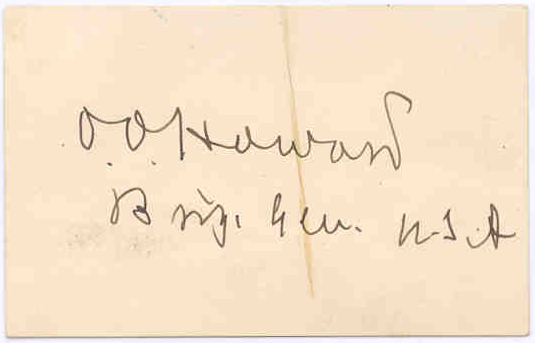 O.O. Howard
Brig. Gen. U.S.A